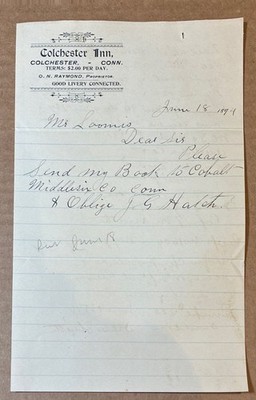 1
Colchester Inn,
COLCHESTER, - CONN.
TERMS: $2.00 PER DAY.
O. N. RAYMOND, PROPRIETOR.
GOOD LIVERY CONNECTED.
June 18 1894
Mr Loomis
Dear Sir
Please
Send my Book to Cobalt
Middlesex Co Conn
& Oblige J G Hatch
June 18